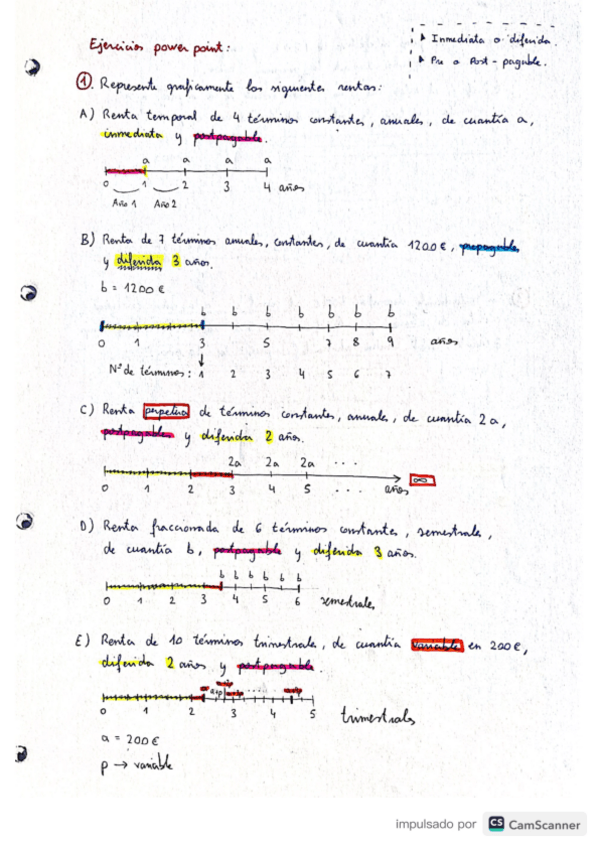 Ejercicios power point:
▸ Inmediata o diferida.
▸ Pre o Post-pagable.
①. Represente graficamente las siguientes rentas:
A) Renta temporal de 4 términos constantes, anuales, de cuantía a,
inmediata y postpagable.
a a a a
0 1 2 3 4 años
Año 1 Año 2
B) Renta de 7 términos anuales, constantes, de cuantía 1200€, prepagable
y diferida 3 años.
b = 1200€
b b b b b b b
0 1 3 5 7 8 9 años
Nº de términos: 1 2 3 4 5 6 7
C) Renta perpetua de términos constantes, anuales, de cuantía 2a,
postpagable y diferida 2 años.
2a 2a 2a ...
0 1 2 3 4 5 ... años ∞
D) Renta fraccionada de 6 términos constantes, semestrales,
de cuantía b, postpagable y diferida 3 años.
b b b b b b
0 1 2 3 4 5 6 semestrales
E) Renta de 10 términos trimestrales, de cuantía variable en 200€,
diferida 2 años y postpagable.
a+p ....
0 1 2 3 4 5 trimestrales
a = 200€
p → variable
impulsado por CS CamScanner